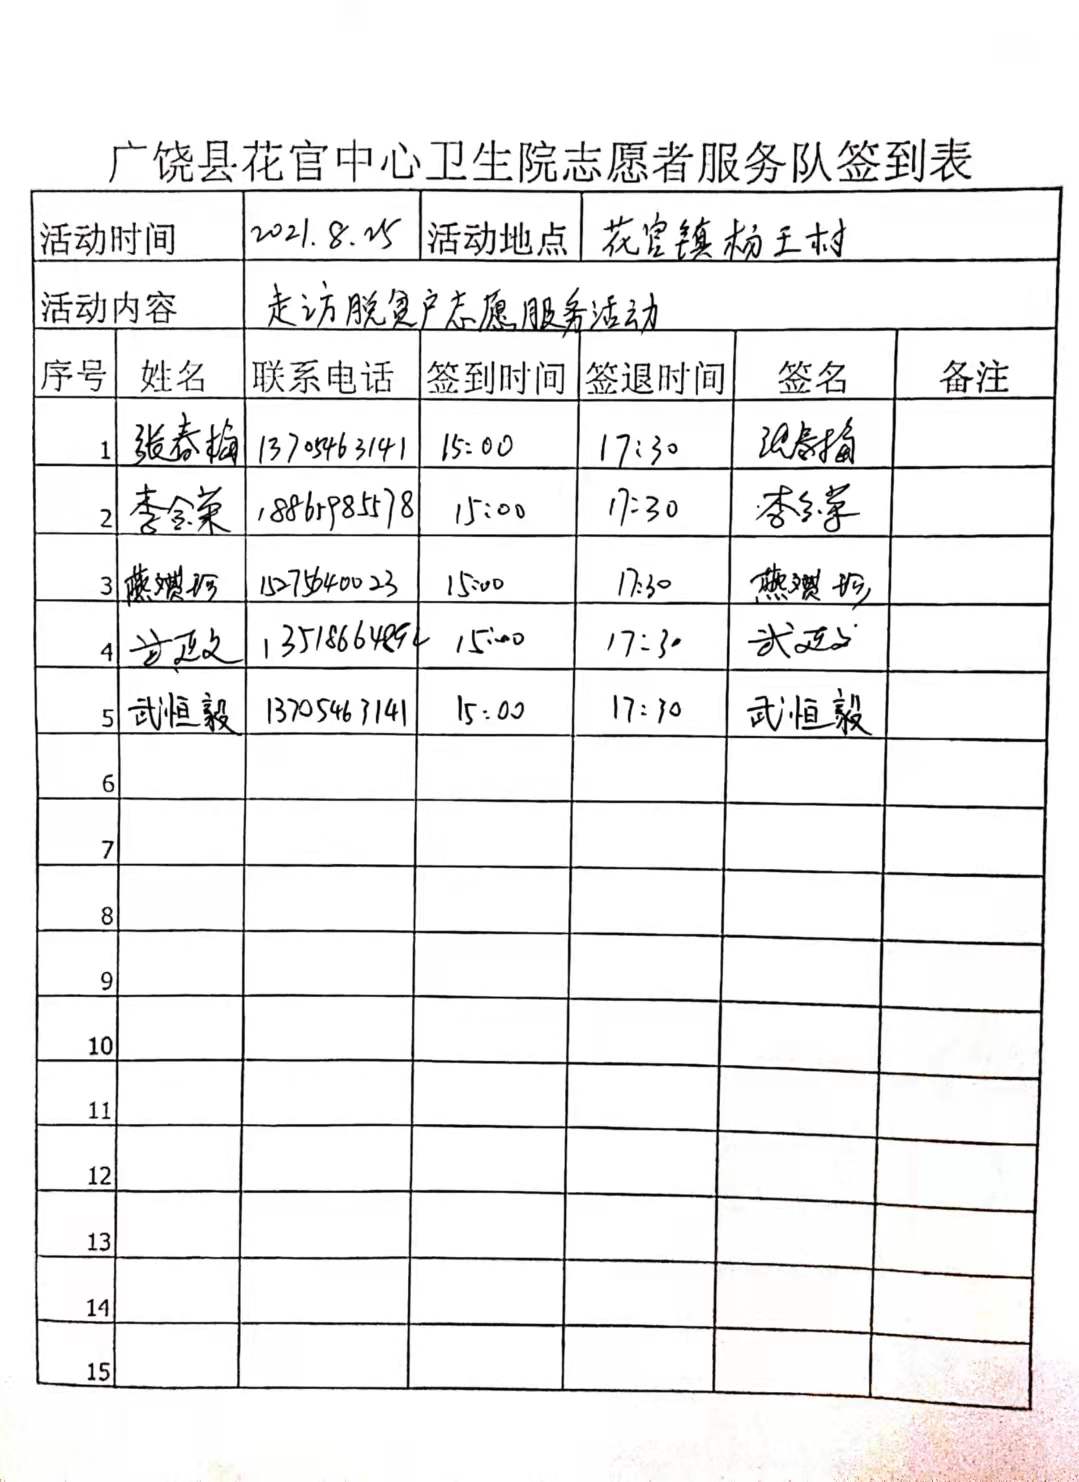 广饶县花官中心卫生院志愿者服务队签到表
活动时间 2021.8.25 活动地点 花官镇杨王村
活动内容 走访脱贫户志愿服务活动
序号 姓名 联系电话 签到时间 签退时间 签名 备注
1 张春梅 13705463141 15:00 17:30 张春梅
2 李金荣 18865985578 15:00 17:30 李金荣
3 燕 珍 15275640023 15:00 17:30 燕 珍
4 15:00 17:30 武
5 武恒毅 13705463141 15:00 17:30 武恒毅
6
7
8
9
10
11
12
13
14
15